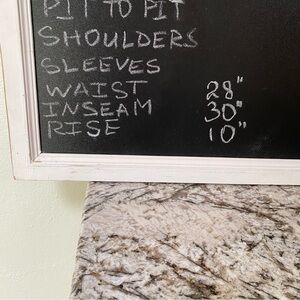 PIT TO PIT
SHOULDERS
SLEEVES
WAIST 28"
INSEAM 30"
RISE 10"